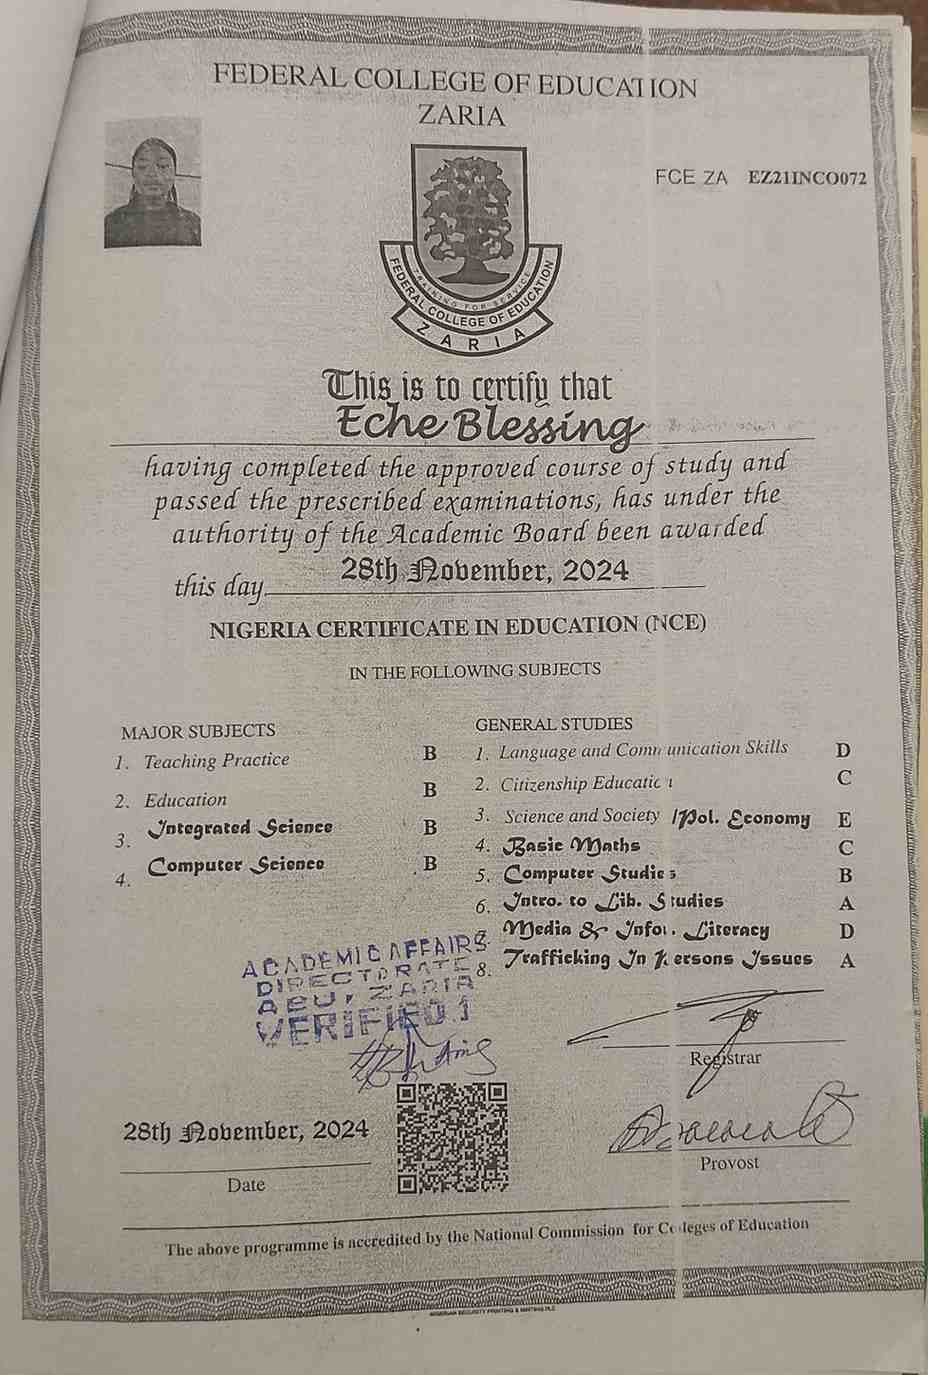 FEDERAL COLLEGE OF EDUCATION
ZARIA
FCE ZA EZ21INCO072
TRAINING FOR SERVICE
FEDERAL COLLEGE OF EDUCATION
ZARIA
This is to certify that
Eche Blessing
having completed the approved course of study and
passed the prescribed examinations, has under the
authority of the Academic Board been awarded
this day 28th November, 2024
NIGERIA CERTIFICATE IN EDUCATION (NCE)
IN THE FOLLOWING SUBJECTS
MAJOR SUBJECTS
1. Teaching Practice B
2. Education B
3. Integrated Science B
4. Computer Science B
GENERAL STUDIES
1. Language and Communication Skills D
2. Citizenship Education C
3. Science and Society /Pol. Economy E
4. Basic Maths C
5. Computer Studies B
6. Intro. to Lib. Studies A
7. Media & Infor. Literacy D
8. Trafficking In Persons Issues A
ACADEMIC AFFAIRS
DIRECTORATE
ABU, ZARIA
VERIFIED 1
Registrar
28th November, 2024
Date
Provost
The above programme is accredited by the National Commission for Colleges of Education
NIGERIAN SECURITY PRINTING & MINTING PLC